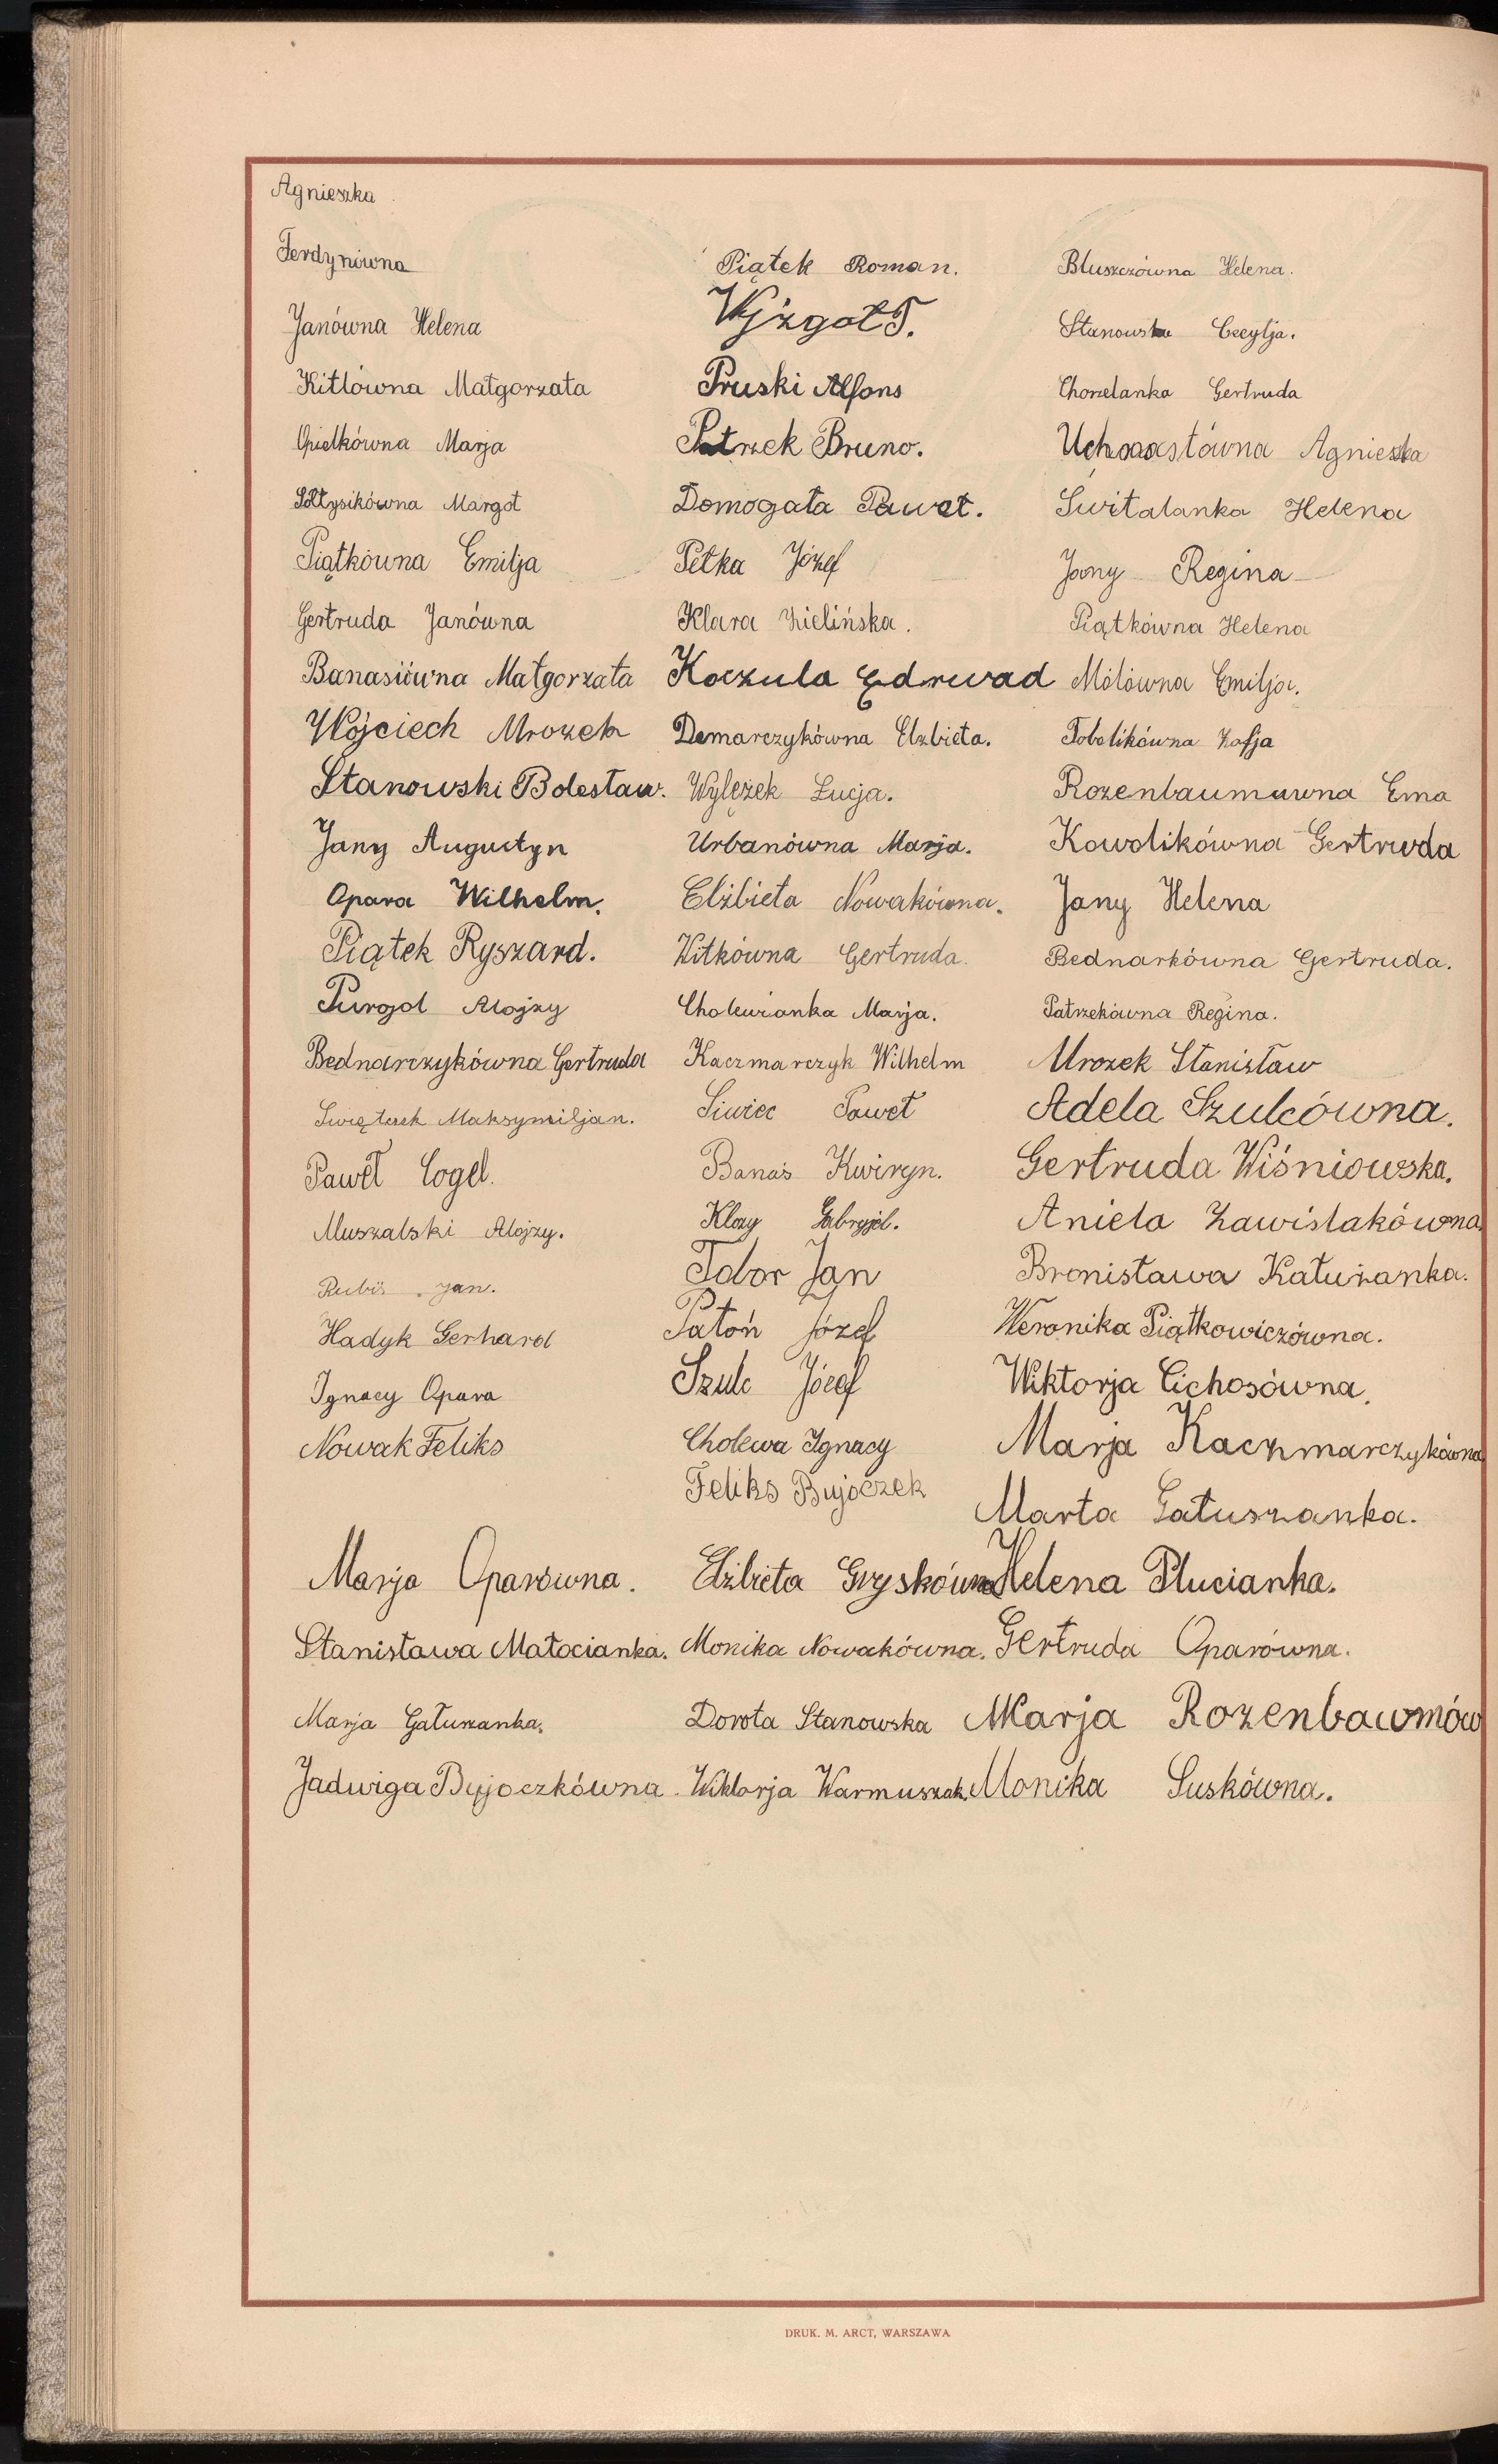 Agnieszka
Ferdynówna
Janówna Helena
Kitlówna Małgorzata
Opiełkówna Marja
Sołtysikówna Margot
Piątkówna Emilja
Gertruda Janówna
Banasiówna Małgorzata
Wojciech Mrozek
Stanowski Bolesław.
Jany Augustyn
Opara Wilhelm.
Piątek Ryszard.
Purgol Alojzy
Bednarczykówna Gertruda
Maksymiljan.
Paweł Cogel.
Muszalski Alojzy.
Rubiś Jan.
Hadyk Gerhard
Ignacy Opara
Nowak Feliks
Marja Oparówna.
Stanisława Małocianka.
Marja Gałuszanka.
Jadwiga Bujoczkówna.
Piątek Roman.
Wyzgoł T.
Pruski Alfons
Patrzek Bruno.
Domogała Paweł.
Petka Józef
Klara Zielińska.
Koczula Edrwad
Demarczykówna Elzbieta.
Wylężek Łucja.
Urbanówna Marja.
Elżbieta Nowakówna.
Witkówna Gertruda.
Cholewianka Marja.
Kaczmarczyk Wilhelm
Siwiec Paweł
Banaś Kwiryn.
Gabryjel.
Tobor Jan
Patoń Józef
Szulc Józef
Cholewa Ignacy
Feliks Bujoczek
Elżbieta Gryskówna
Monika Nowakówna.
Dorota Stanowska
Wiktorja Warmuszak.
Bluszczówna Helena.
Stanowska Cecylja.
Chorzelanka Gertruda
Agnieszka
Świtalanka Helena
Jany Regina
Piątkówna Helena
Molówna Emilja.
Tobolikówna Zofja
Rozenbaumuwna Ema
Kowolikówna Gertruda
Jany Helena
Bednarkówna Gertruda.
Patrzekówna Regina.
Mrozek Stanisław
Adela Szulcówna.
Gertruda Wiśniowska.
Aniela Zawiślakówna.
Bronisława Katużanka.
Weronika Piątkowiczówna.
Wiktorja Cichosówna.
Marja Kaczmarczykówna
Marta Gałuszanka.
Helena Plucianka.
Gertruda Oparówna.
Marja Rozenbawmów
Monika Suskówna.
DRUK. M. ARCT, WARSZAWA